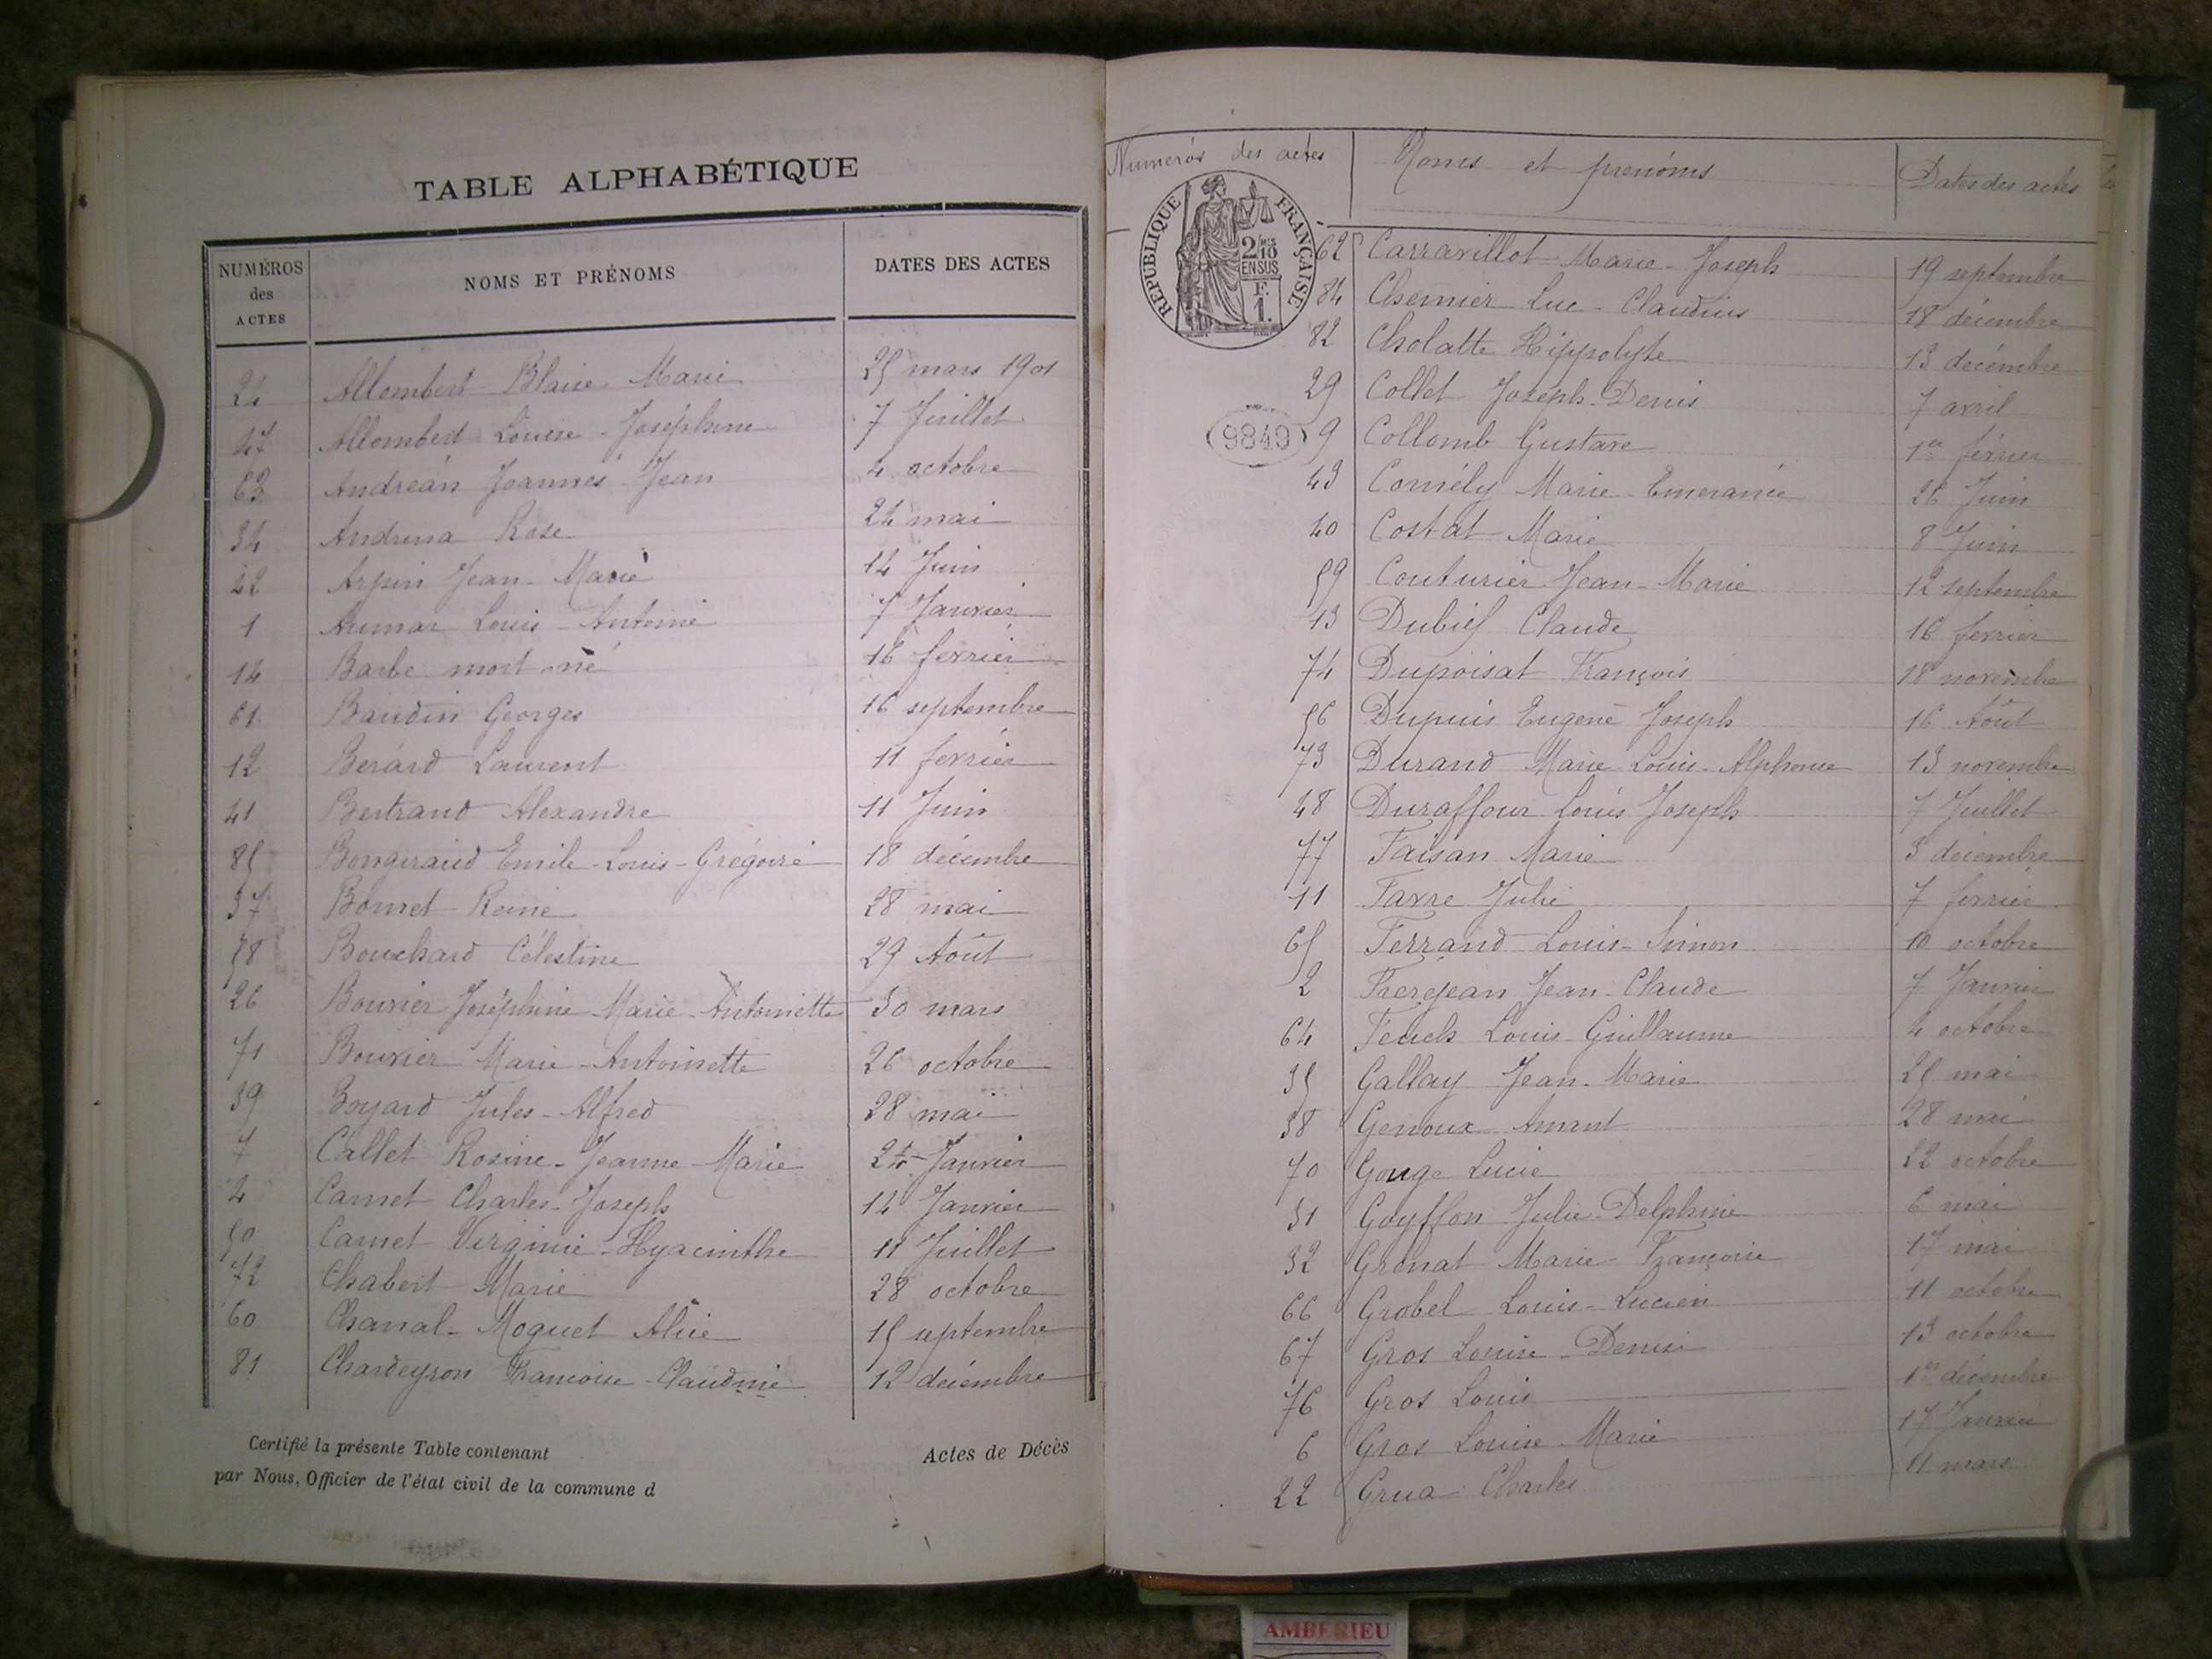 TABLE ALPHABÉTIQUE
NUMÉROS des ACTES NOMS ET PRÉNOMS DATES DES ACTES
24 Allombert Blaise Marie 25 mars 1901
47 Allombert Louise-Joséphine 7 Juillet
63 Andréan Joannès Jean 4 octobre
34 Andruna Rose 24 mai
42 Arpin Jean-Marie 14 Juin
1 Aumar Louis-Antoine 7 Janvier
14 Barbe mort-né 16 fevrier
61 Baudin Georges 16 septembre
12 Berard Laurent 11 fevrier
41 Bertrand Alexandre 11 Juin
85 Bongiraud Emile-Louis-Grégoire 18 décembre
37 Bonnet Reine 28 mai
58 Bouchard Célestine 29 Août
26 Bouvier Joséphine-Marie-Antoinette 30 mars
71 Bouvier Marie-Antoinette 26 octobre
39 Boyard Jules-Alfred 28 mai
7 Callet Rosine-Jeanne-Marie 24 Janvier
4 Carnet Charles-Joseph 14 Janvier
50 Carnet Virginie-Hyacinthe 11 Juillet
72 Chabert Marie 28 octobre
60 Chanal-Moguet Alice 15 septembre
81 Chardeyron Francoise-Claudine 12 décembre
Certifié la présente Table contenant Actes de Décès
par Nous, Officier de l'état civil de la commune d
Numerós des actes Noms et prenóms Dates des actes
RÉPUBLIQUE FRANÇAISE
2/10 EN SUS
F. 1.
9849
62 Carravillot Marie-Joseph 19 septembre
84 Chernier Luc-Claudius 18 décembre
82 Cholatte Hippolyte 13 décembre
29 Collet Joseph-Denis 7 avril
9 Collomb Gustave 1er février
43 Cornély Marie-Emerancie 26 Juin
40 Costat Marie 8 Juin
59 Couturier Jean-Marie 12 septembre
13 Dubief Claude 16 fevrier
74 Dupoisat François 18 novembre
56 Dupuis Eugene Joseph 16 Août
73 Durand Marie-Louis-Alphonse 13 novembre
48 Duraffour Louis Joseph 7 Juillet
77 Faisan Marie 3 décembre
11 Favre Julie 7 fevrier
65 Ferrand Louis-Simon 10 octobre
2 Frerejean Jean-Claude 7 Janvier
64 Feuch Louis Guillaume 4 octobre
35 Gallay Jean-Marie 25 mai
38 Genoux Amant 28 mai
70 Gouge Lucie 22 octobre
31 Goyffon Julie-Delphine 6 mai
32 Grenat Marie-Françoise 17 mai
66 Grobel Louis-Lucien 11 octobre
67 Gros Louise-Denise 13 octobre
76 Gros Louis 1er décembre
6 Gros Louise-Marie 17 Janvier
22 Grua Charles 11 mars
AMBERIEU